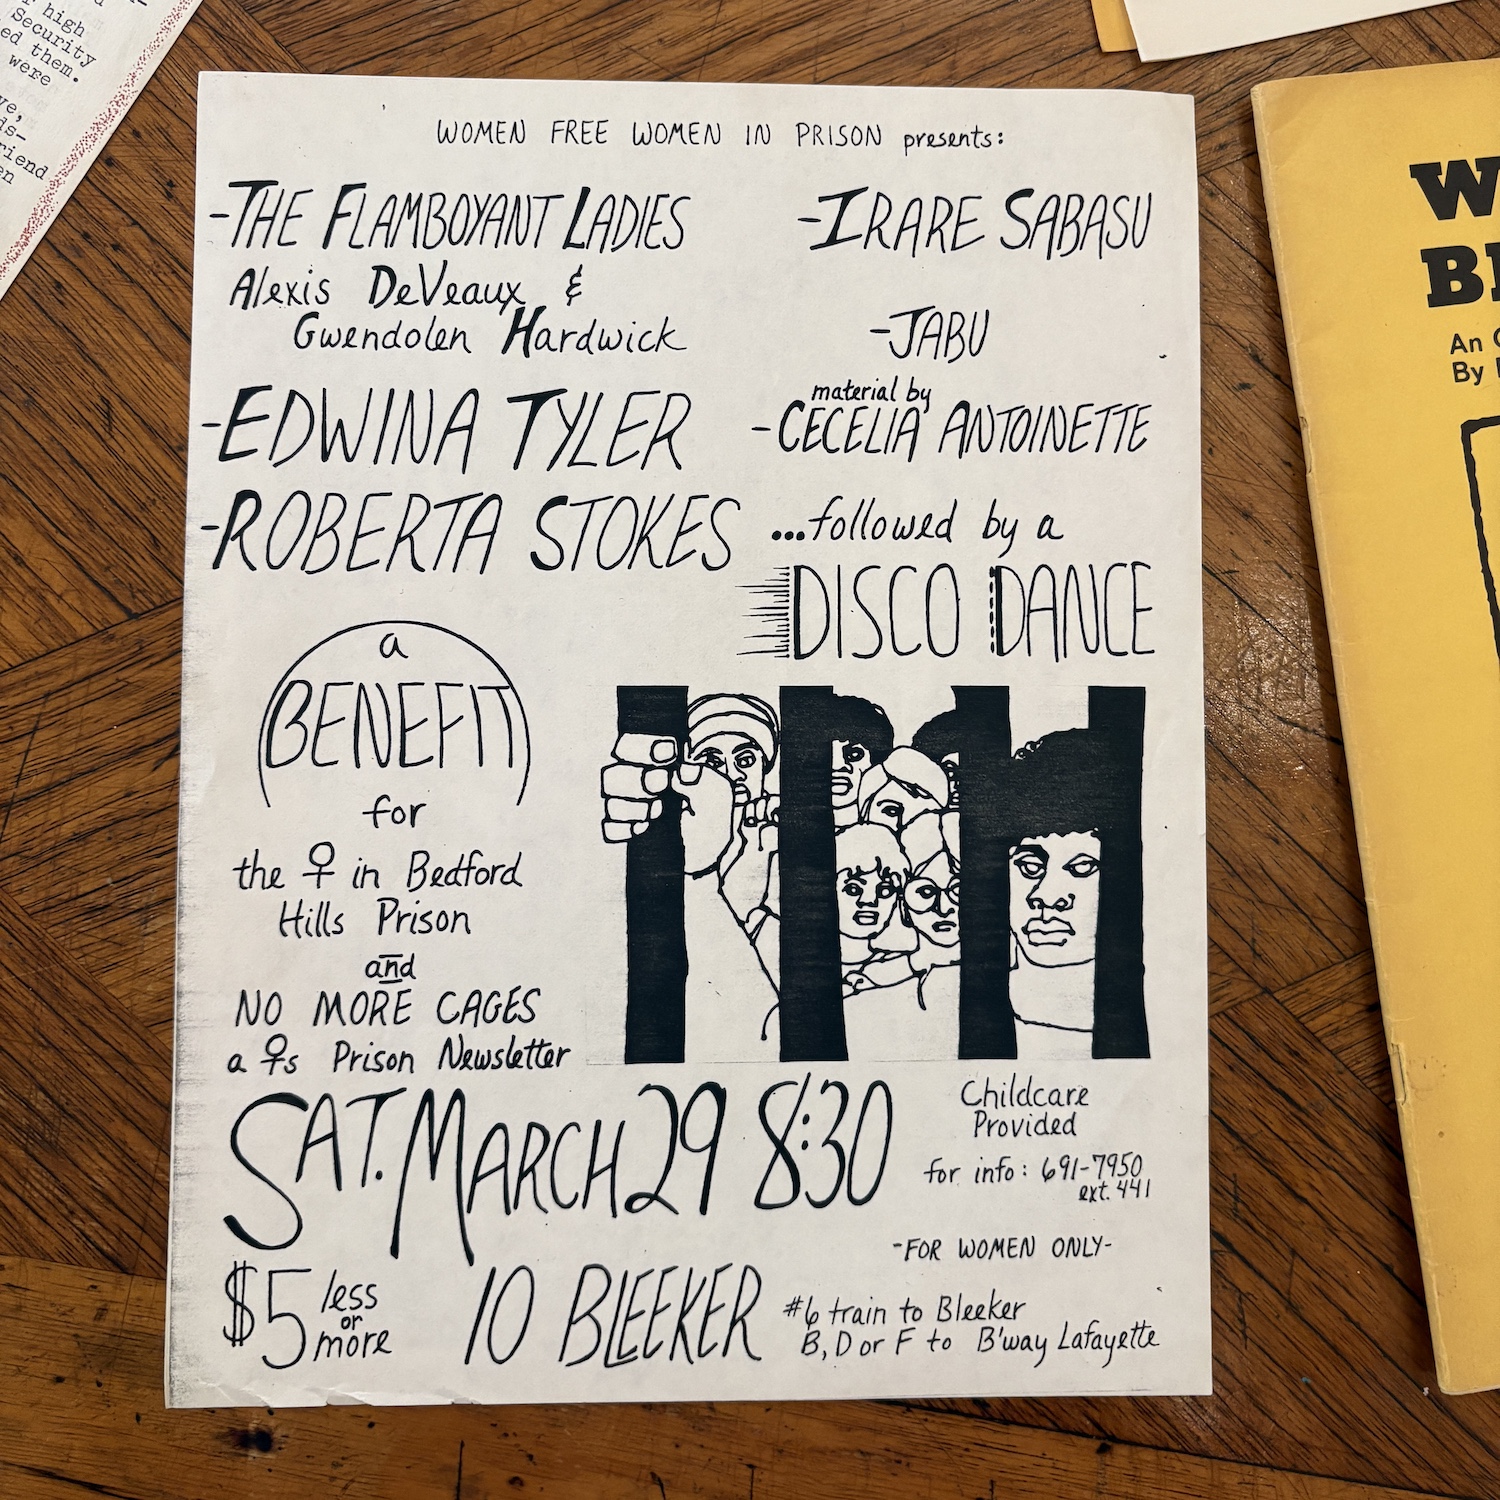 r high
Security
ed them.
were
ve,
ds-
riend
en
WOMEN FREE WOMEN IN PRISON presents:
-THE FLAMBOYANT LADIES
Alexis DeVeaux &
Gwendolen Hardwick
-EDWINA TYLER
-ROBERTA STOKES
-IRARE SABASU
-JABU
material by
-CECELIA ANTOINETTE
...followed by a
DISCO DANCE
a
BENEFIT
for
the ♀ in Bedford
Hills Prison
and
NO MORE CAGES
a ♀s Prison Newsletter
SAT. MARCH 29 8:30
Childcare
Provided
for info: 691-7950
ext. 441
-FOR WOMEN ONLY-
$5 less
or
more
10 BLEEKER
#6 train to Bleeker
B, D or F to B'way Lafayette
W
BL
An
By